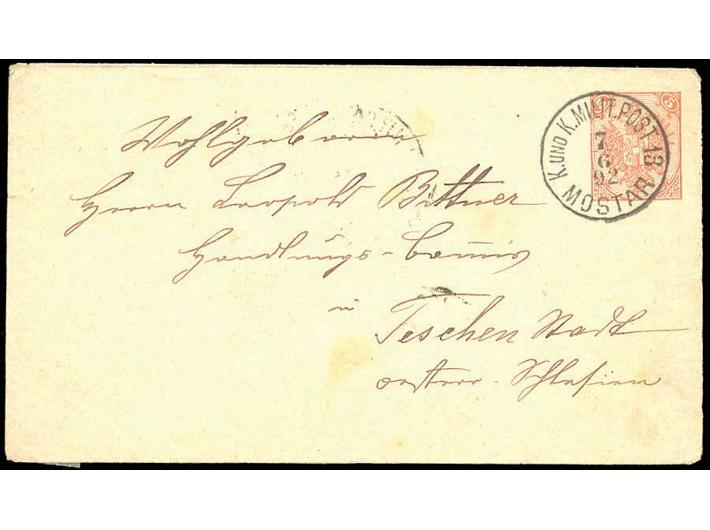 K. UND K. MILIT. POST 18
7
6
02
MOSTAR
5
Wohlgeboren
Herrn Leopold Bittner
Handlungs-Commis
in
Teschen Stadt
oesterr. Schlesien